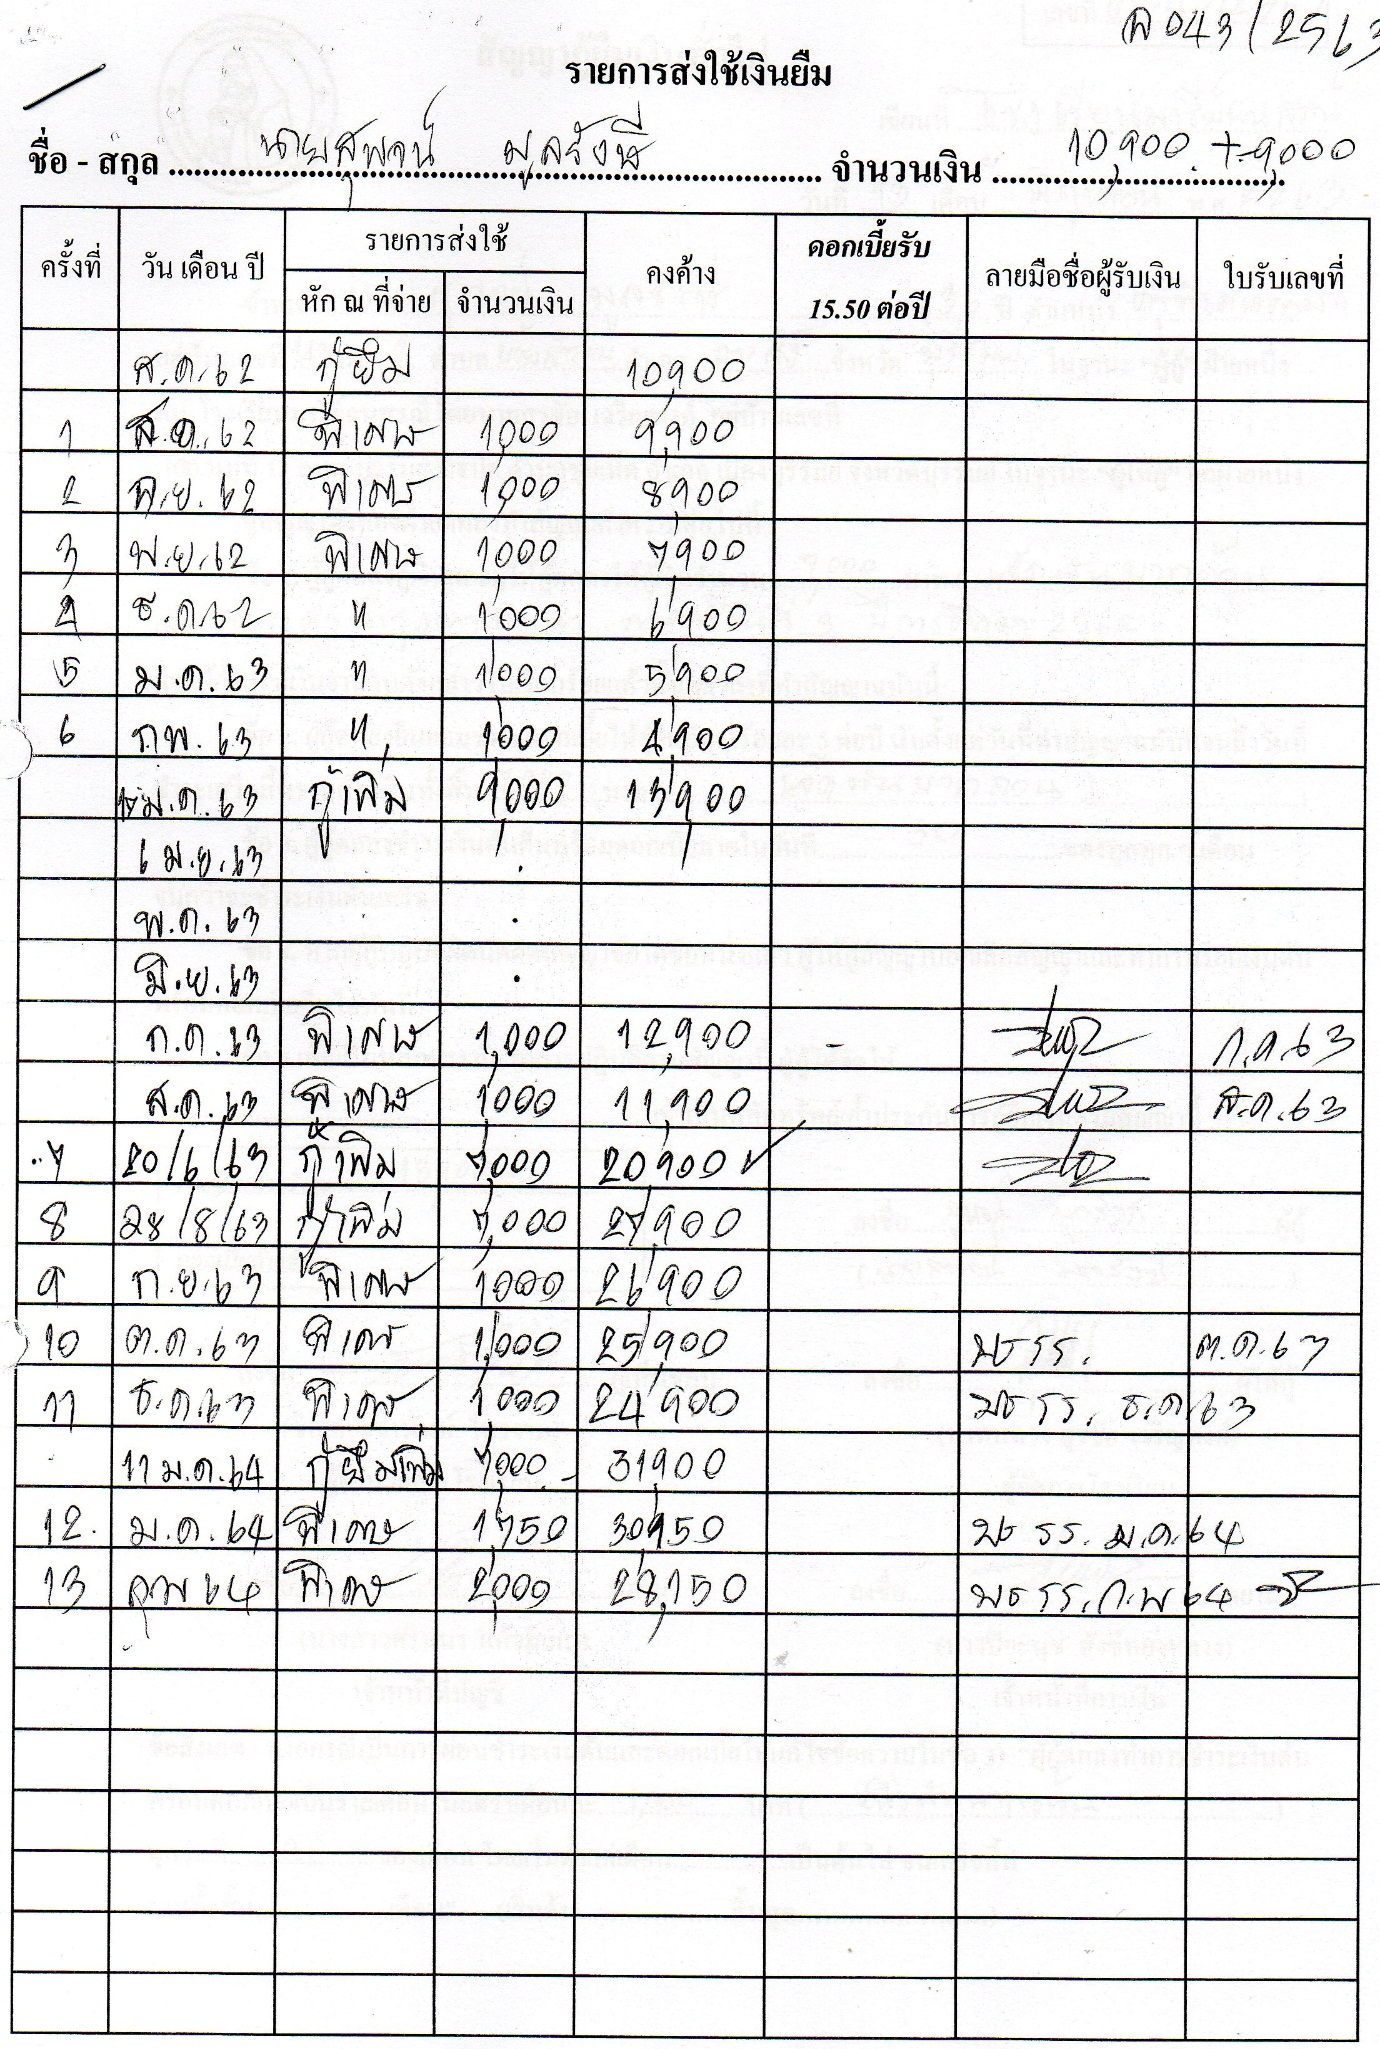 043/2563
รายการส่งใช้เงินยืม
ชื่อ - สกุล นายสุพจน์ มูลรังษี จำนวนเงิน 10,900 + 9,000
ครั้งที่ วัน เดือน ปี รายการส่งใช้ คงค้าง ดอกเบี้ยรับ 15.50 ต่อปี ลายมือชื่อผู้รับเงิน ใบรับเลขที่
หัก ณ ที่จ่าย จำนวนเงิน
ส.ค.62 กู้ยืม 10,900
1 ส.ค.62 พิเศษ 1,000 9,900
2 ต.ย.62 พิเศษ 1,000 8,900
3 พ.ย.62 พิเศษ 1,000 7,900
4 ธ.ค.62 " 1,000 6,900
5 ม.ค.63 " 1,000 5,900
6 ก.พ.63 " 1,000 4,900
ม.ค.63 กู้เพิ่ม 9,000 13,900
เม.ย.63
พ.ค.63
มิ.ย.63
ก.ค.63 พิเศษ 1,000 12,900 - ก.ค.63
ส.ค.63 พิเศษ 1,000 11,900 ส.ค.63
7 20/6/63 กู้เพิ่ม 9,000 20,900 ✓
8 28/8/63 กู้เพิ่ม 7,000 27,900
9 ก.ย.63 พิเศษ 1,000 26,900
10 ต.ค.63 พิเศษ 1,000 25,900 นธรร. ต.ค.63
11 ธ.ค.63 พิเศษ 1,000 24,900 นธรร. ธ.ค.63
11 ม.ค.64 กู้ยืมเพิ่ม 7,000.- 31,900
12. ม.ค.64 พิเศษ 1,750 30,150 นธรร. ม.ค.64
13 ก.พ 64 พิเศษ 2,000 28,150 นธรร. ก.พ 64